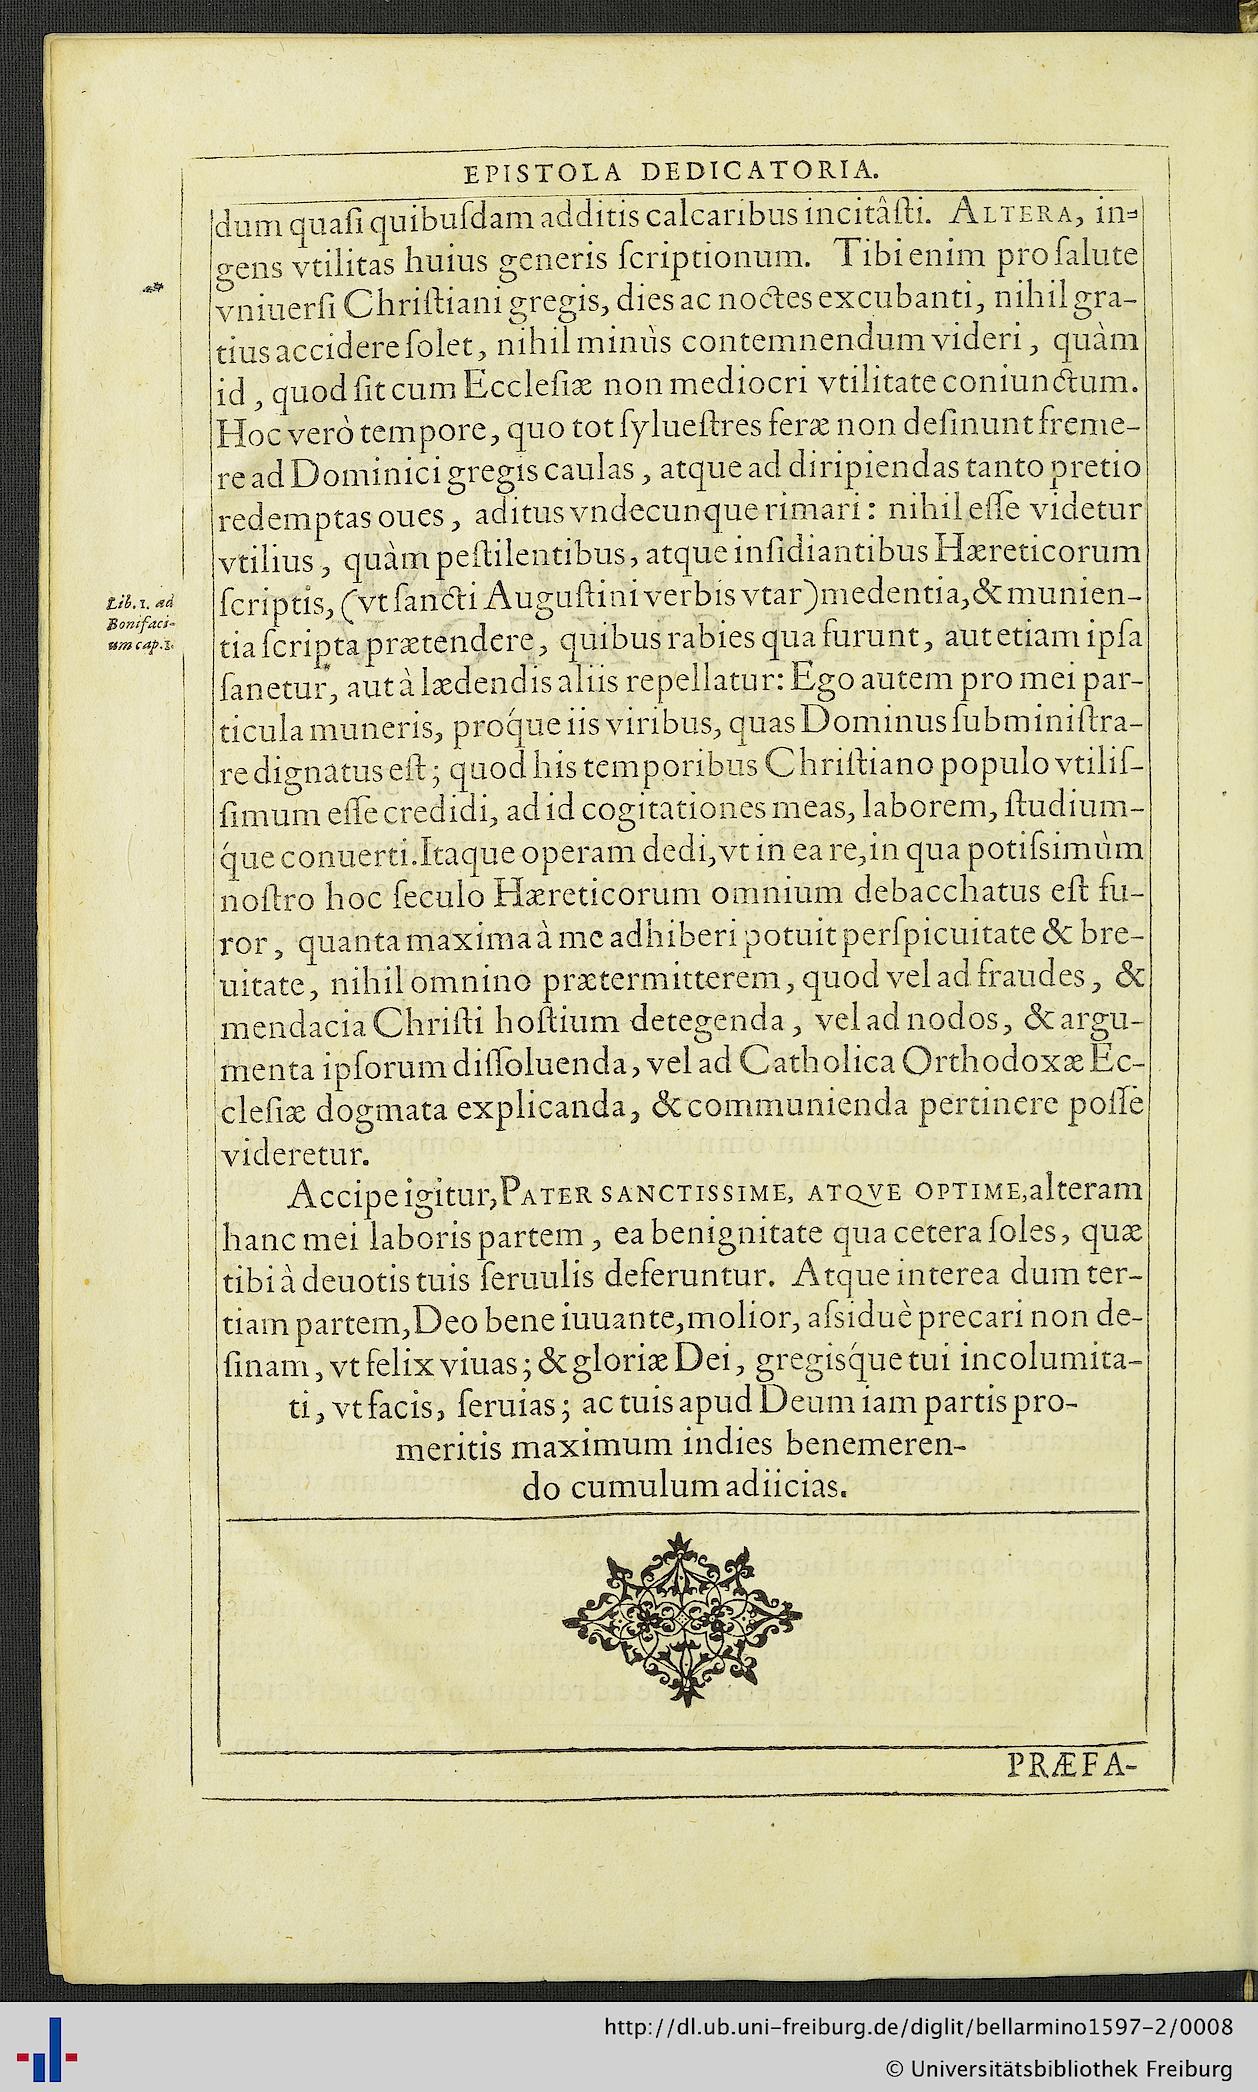 EPISTOLA DEDICATORIA.
dum quaſi quibuſdam additis calcaribus incitâſti. ALTERA, in-
gens vtilitas huius generis ſcriptionum. Tibi enim pro ſalute
vniuerſi Chriſtiani gregis, dies ac noctes excubanti, nihil gra-
tius accidere ſolet, nihil minùs contemnendum videri, quàm
id, quod ſit cum Eccleſiæ non mediocri vtilitate coniunctum.
Hoc verò tempore, quo tot ſylueſtres feræ non deſinunt freme-
re ad Dominici gregis caulas, atque ad diripiendas tanto pretio
redemptas oues, aditus vndecunque rimari: nihil eſſe videtur
vtilius, quàm peſtilentibus, atque inſidiantibus Hæreticorum
Lib. 1. ad
Bonifaci-
um cap. 1.
ſcriptis, (vt ſancti Auguſtini verbis vtar) medentia, & munien-
tia ſcripta prætendere, quibus rabies qua furunt, aut etiam ipſa
ſanetur, aut à lædendis aliis repellatur: Ego autem pro mei par-
ticula muneris, proq́ue iis viribus, quas Dominus ſubminiſtra-
re dignatus eſt; quod his temporibus Chriſtiano populo vtiliſ-
ſimum eſſe credidi, ad id cogitationes meas, laborem, ſtudium-
q́ue conuerti. Itaque operam dedi, vt in ea re, in qua potiſsimùm
noſtro hoc ſeculo Hæreticorum omnium debacchatus eſt fu-
ror, quanta maxima à me adhiberi potuit perſpicuitate & bre-
uitate, nihil omnino prætermitterem, quod vel ad fraudes, &
mendacia Chriſti hoſtium detegenda, vel ad nodos, & argu-
menta ipſorum diſſoluenda, vel ad Catholica Orthodoxæ Ec-
cleſiæ dogmata explicanda, & communienda pertinere poſſe
videretur.
Accipe igitur, PATER SANCTISSIME, ATQVE OPTIME, alteram
hanc mei laboris partem, ea benignitate qua cetera ſoles, quæ
tibi à deuotis tuis ſeruulis deferuntur. Atque interea dum ter-
tiam partem, Deo bene iuuante, molior, aſsiduè precari non de-
ſinam, vt felix viuas; & gloriæ Dei, gregisq́ue tui incolumita-
ti, vt facis, ſeruias; ac tuis apud Deum iam partis pro-
meritis maximum indies benemeren-
do cumulum adiicias.
PRÆFA-
http://dl.ub.uni-freiburg.de/diglit/bellarmino1597-2/0008
© Universitätsbibliothek Freiburg